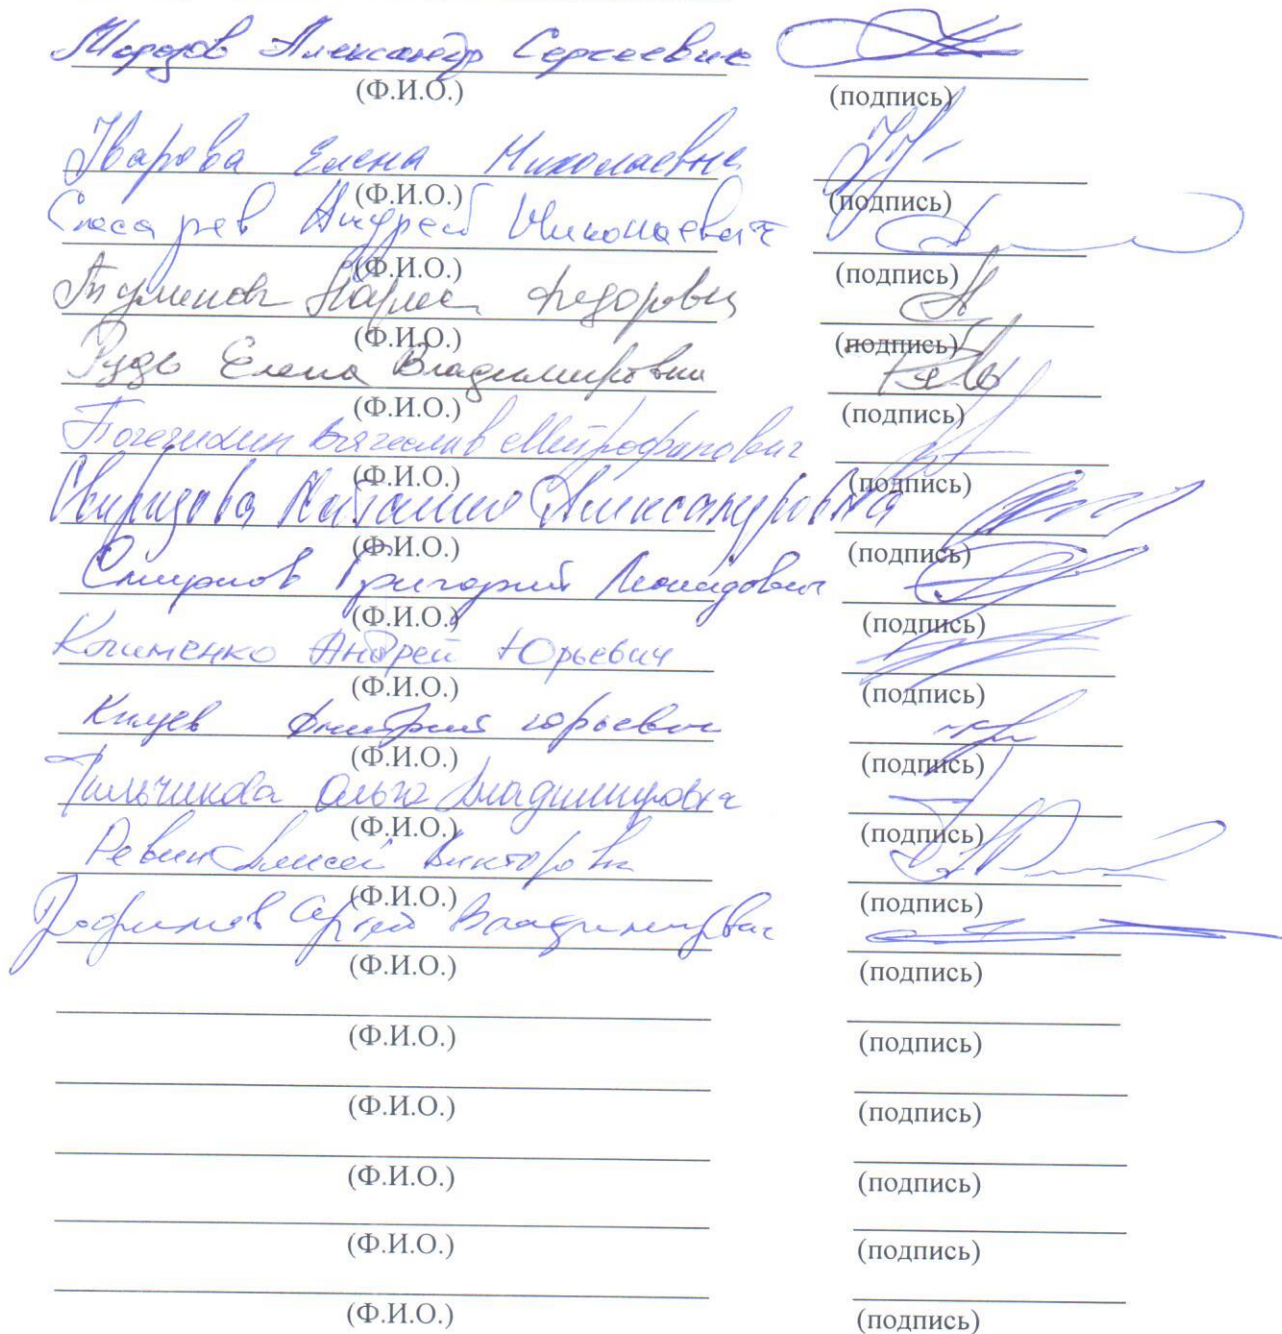 Морозов Александр Сергеевич
(Ф.И.О.) (подпись)
Уварова Елена Николаевна
(Ф.И.О.) (подпись)
Слесарев Андрей Николаевич
(Ф.И.О.) (подпись)
Федоровна
(Ф.И.О.) (подпись)
Рудь Елена Владимировна
(Ф.И.О.) (подпись)
Вячеслав Митрофанович
(Ф.И.О.) (подпись)
Свиридова Наталия Александровна
(Ф.И.О.) (подпись)
Смирнов Григорий Леонидович
(Ф.И.О.) (подпись)
Клименко Андрей Юрьевич
(Ф.И.О.) (подпись)
Дмитрий Юрьевич
(Ф.И.О.) (подпись)
Пильчикова Ольга Владимировна
(Ф.И.О.) (подпись)
Ревин Алексей Викторович
(Ф.И.О.) (подпись)
Трофимов Сергей Владимирович
(Ф.И.О.) (подпись)
(Ф.И.О.) (подпись)
(Ф.И.О.) (подпись)
(Ф.И.О.) (подпись)
(Ф.И.О.) (подпись)
(Ф.И.О.) (подпись)